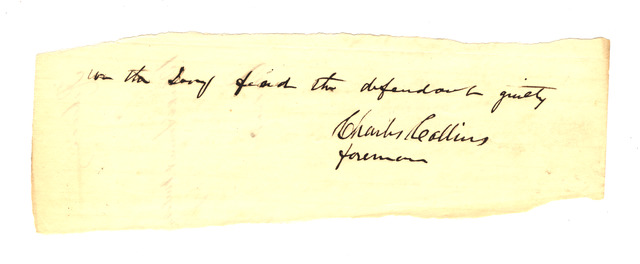 we the Jury find the defendant guilty
Charles Collins
foreman